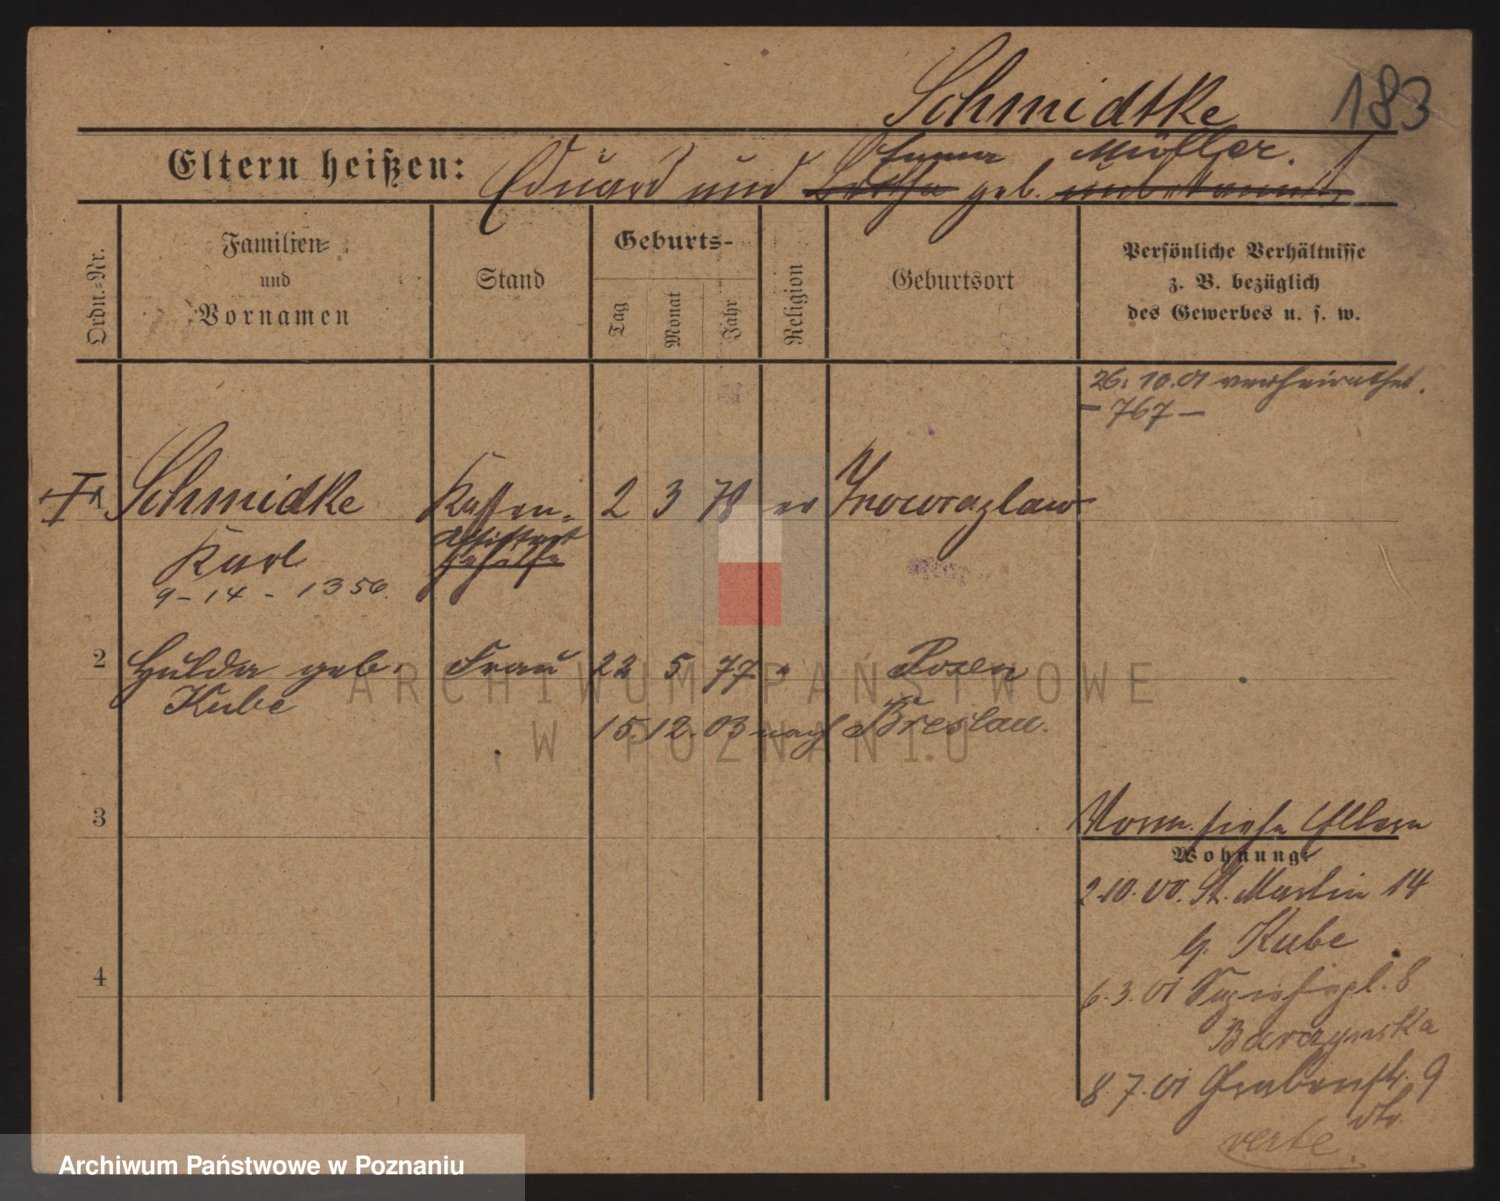 Schmidtke
183
Eltern heißen: Eduard und Bertha geb. unbekannt
Emma Müller.
Ordn.-Nr.
Familien- und Vornamen
Stand
Geburts-
Tag
Monat
Jahr
Religion
Geburtsort
Persönliche Verhältnisse
z. B. bezüglich
des Gewerbes u. s. w.
26.10.01 verheirathet.
– 767 –
1 Schmidke Kassen- 2 3 78 ev Inowrazlaw
Assistent
gehilfe
Karl
9 - 14 - 1356
2 Hulda geb. Frau 22 5 77 " Posen
Kube
15.12.03 nach Breslau.
3
Vorm. siehe Eltern
Wohnung:
2.10.00. St. Martin 14
b. Kube
4
6.3.01 Sapiehapl. 8
8.7.01 Grabenstr. 9
dto.
verte.
ARCHIWUM PAŃSTWOWE
W POZNANIU
Archiwum Państwowe w Poznaniu